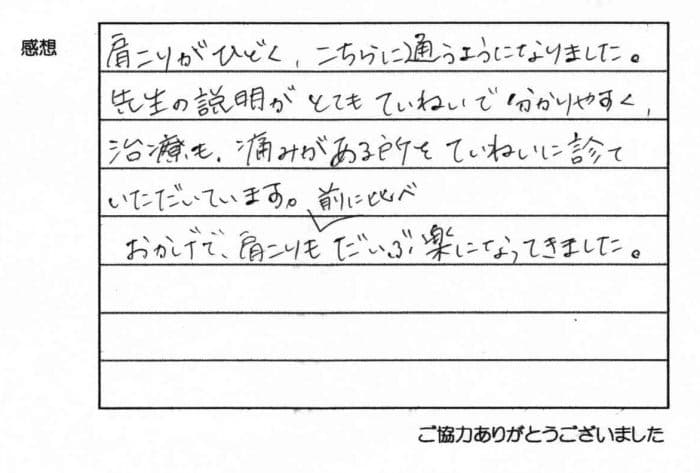 感想
肩こりがひどく、こちらに通うようになりました。
先生の説明がとてもていねいで分かりやすく、
治療も、痛みがある所をていねいに診て
いただいています。前に比べ
おかげで、肩こりもだいぶ楽になってきました。
ご協力ありがとうございました